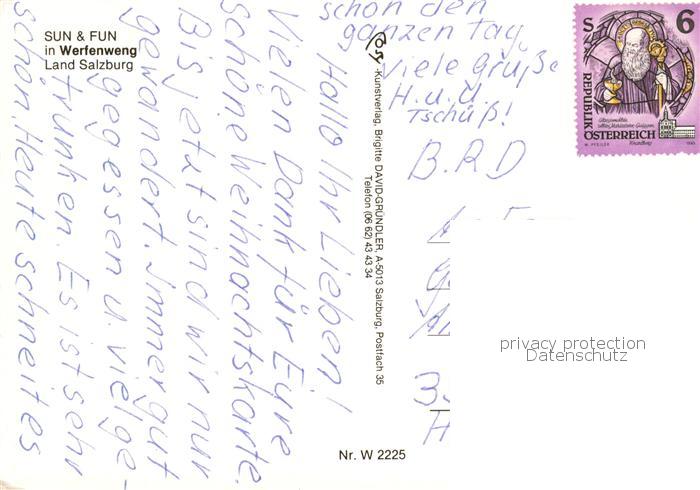 SUN & FUN
in Werfenweng
Land Salzburg
Hallo Ihr Lieben!
Vielen Dank für Eure
schöne Weihnachtskarte.
Bis jetzt sind wir nur
gewandert. Immer gut
gegessen u. viel ge-
trunken. Es ist sehr
schön. Heute schneit es
schon den
ganzen Tag
Viele Grüße
H. u. U.
Tschüß!
B.R.D
Cosy-Kunstverlag, Brigitte DAVID-GRÜNDLER, A-5013 Salzburg, Postfach 35
Telefon (06 62) 43 43 34
Nr. W 2225
S 6
REPUBLIK
ÖSTERREICH
privacy protection
Datenschutz